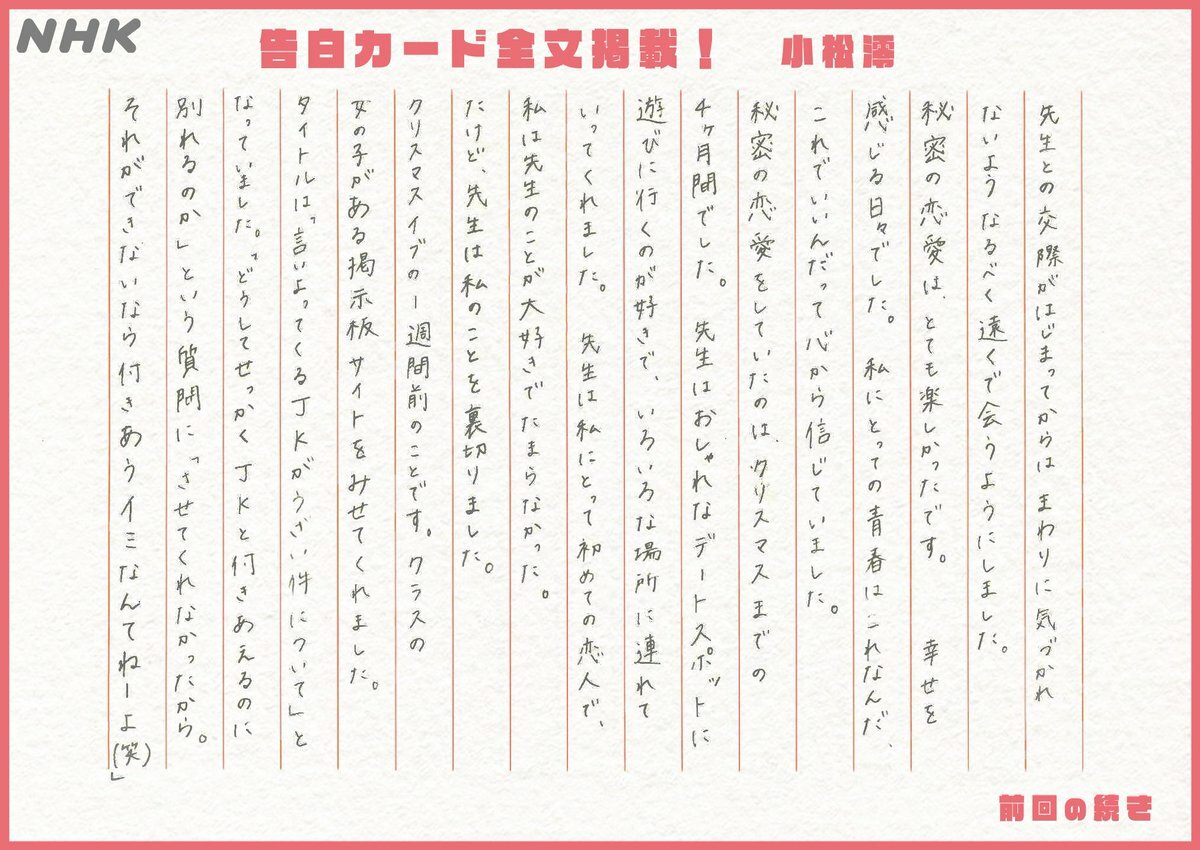 NHK
告白カード全文掲載！　小松澪
先生との交際がはじまってからは まわりに気づかれ
ないよう なるべく遠くで会うようにしました。
秘密の恋愛は、とても楽しかったです。　幸せを
感じる日々でした。　私にとっての青春はこれなんだ、
これでいいんだって心から信じていました。
秘密の恋愛をしていたのは、クリスマスまでの
4ヶ月間でした。　先生はおしゃれなデートスポットに
遊びに行くのが好きで、いろいろな場所に連れて
いってくれました。　先生は私にとって初めての恋人で、
私は先生のことが大好きでたまらなかった。
だけど、先生は私のことを裏切りました。
クリスマスイブの一週間前のことです。クラスの
女の子がある掲示板サイトをみせてくれました。
タイトルは「言いよってくるJKがうざい件について」と
なっていました。「どうしてせっかくJKと付きあえるのに
別れるのか」という質問に「させてくれなかったから。
それができないなら付きあうイミなんてねーよ(笑)」
前回の続き